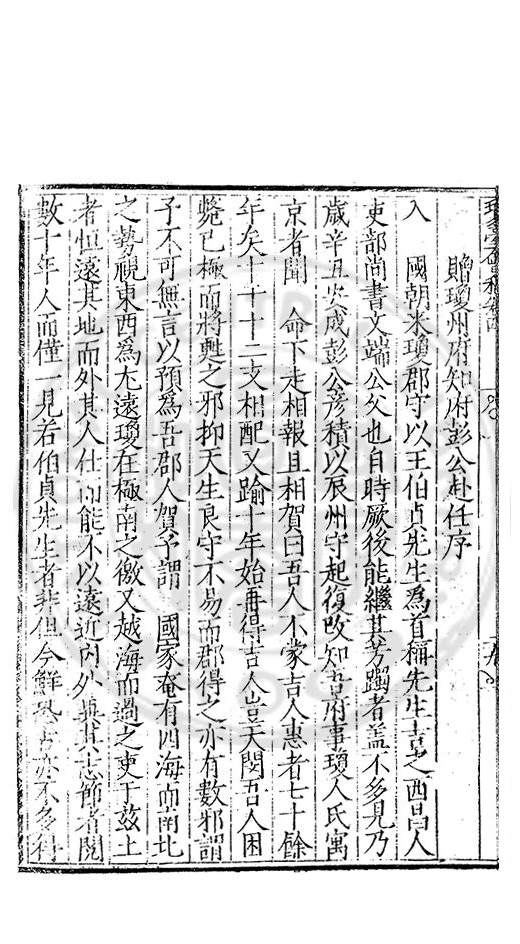 贈瓊州府知府彭公赴任序
入 國朝來瓊郡守以王伯貞先生為首稱先生吉之西昌人
吏部尚書文端公父也自時厥後能繼其芳躅者蓋不多見乃
歲辛丑安成彭公彥積以辰州守起復改知吾府事瓊人氏寓
京者聞 命下走相報且相賀曰吾人不蒙吉人惠者七十餘
年矣十干十二支相配又踰十年始再得吉人豈天閔吾人困
斃已極而將甦之邪抑天生良守不易而郡得之亦有數邪謂
予不可無言以預為吾郡人賀予謂 國家奄有四海而南北
之勢視東西為尤遠瓊在極南之徼又越海而過之吏于茲土
者恒遠其地而外其人仕而能不以遠近內外異其志節者閱
數十年人而僅一見若伯貞先生者非但今鮮恐古亦不多得